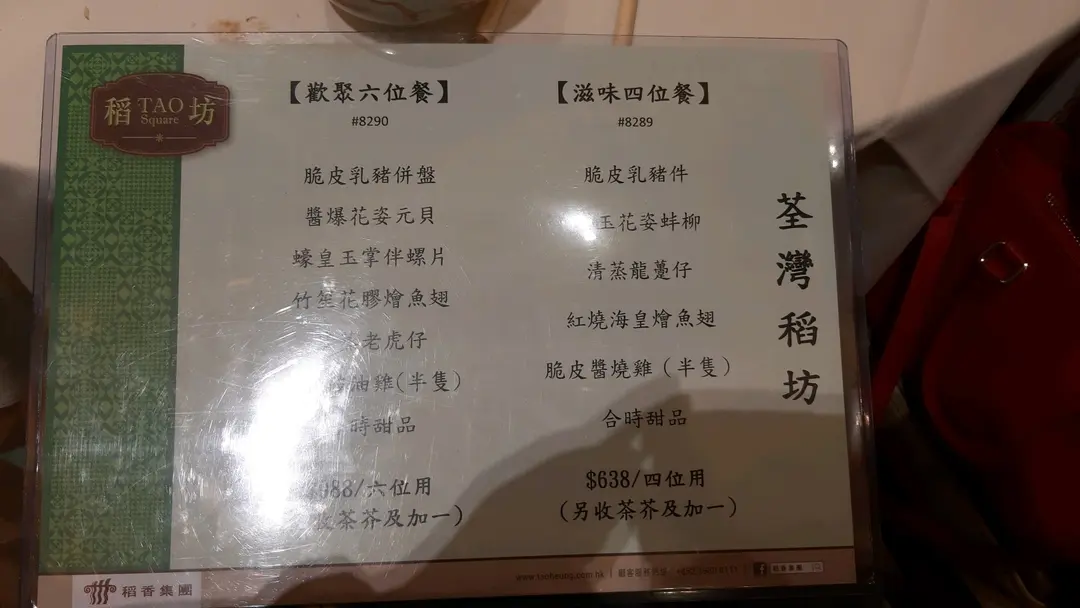 稻 TAO Square 坊
【歡聚六位餐】
#8290
脆皮乳豬併盤
醬爆花姿元貝
蠔皇玉掌伴螺片
竹笙花膠燴魚翅
老虎仔
油雞(半隻)
時甜品
88/六位用
收茶芥及加一)
【滋味四位餐】
#8289
脆皮乳豬件
玉花姿蚌柳
清蒸龍躉仔
紅燒海皇燴魚翅
脆皮醬燒雞(半隻)
合時甜品
$638/四位用
(另收茶芥及加一)
荃灣稻坊
稻香集團
www.taoheung.com.hk
稻香集團